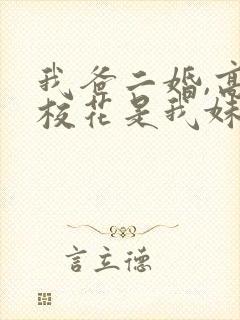 我爸二婚,高
校花是我妹
言立德